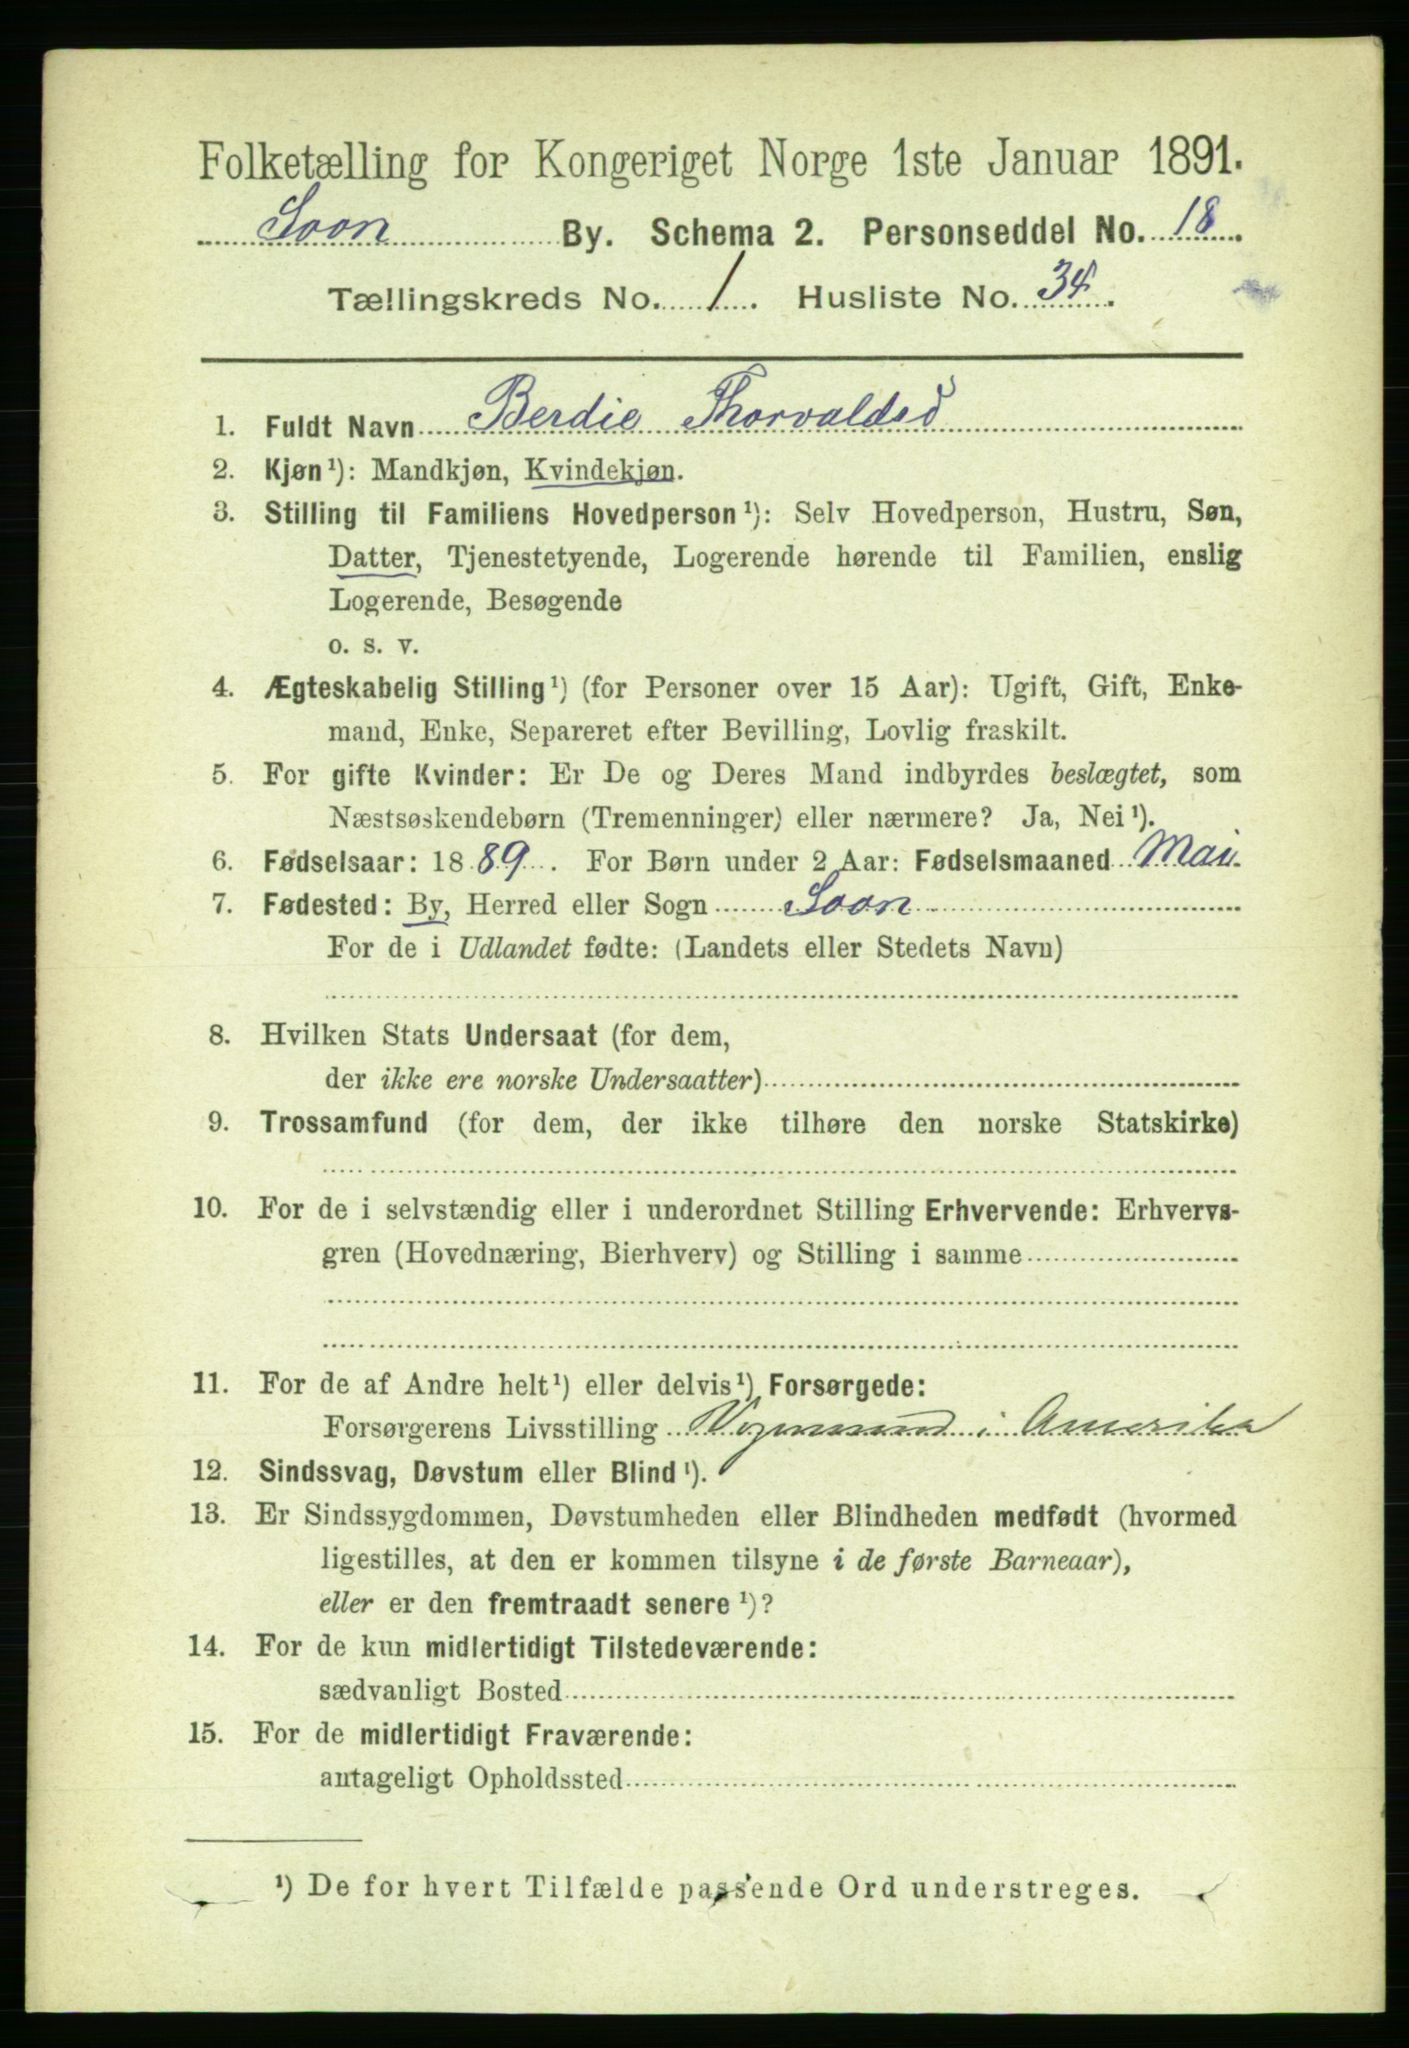 Folketælling for Kongeriget Norge 1ste Januar 1891.
Soon By. Schema 2. Personseddel No. 18.
Tællingskreds No. 1. Husliste No. 34.
1. Fuldt Navn Berdie Thorvaldsd
2. Kjøn¹): Mandkjøn, Kvindekjøn.
3. Stilling til Familiens Hovedperson¹): Selv Hovedperson, Hustru, Søn,
Datter, Tjenestetyende, Logerende hørende til Familien, enslig
Logerende, Besøgende
o. s. v.
4. Ægteskabelig Stilling¹) (for Personer over 15 Aar): Ugift, Gift, Enke-
mand, Enke, Separeret efter Bevilling, Lovlig fraskilt.
5. For gifte Kvinder: Er De og Deres Mand indbyrdes beslægtet, som
Næstsøskendebørn (Tremenninger) eller nærmere? Ja, Nei¹).
6. Fødselsaar: 1889. For Børn under 2 Aar: Fødselsmaaned Mai.
7. Fødested: By, Herred eller Sogn Soon
For de i Udlandet fødte: (Landets eller Stedets Navn)
8. Hvilken Stats Undersaat (for dem,
der ikke ere norske Undersaatter)
9. Trossamfund (for dem, der ikke tilhøre den norske Statskirke)
10. For de i selvstændig eller i underordnet Stilling Erhvervende: Erhvervs-
gren (Hovednæring, Bierhverv) og Stilling i samme
11. For de af Andre helt¹) eller delvis¹) Forsørgede:
Forsørgerens Livsstilling i Amerika
12. Sindssvag, Døvstum eller Blind¹).
13. Er Sindssygdommen, Døvstumheden eller Blindheden medfødt (hvormed
ligestilles, at den er kommen tilsyne i de første Barneaar),
eller er den fremtraadt senere¹)?
14. For de kun midlertidigt Tilstedeværende:
sædvanligt Bosted
15. For de midlertidigt Fraværende:
antageligt Opholdssted
¹) De for hvert Tilfælde passende Ord understreges.